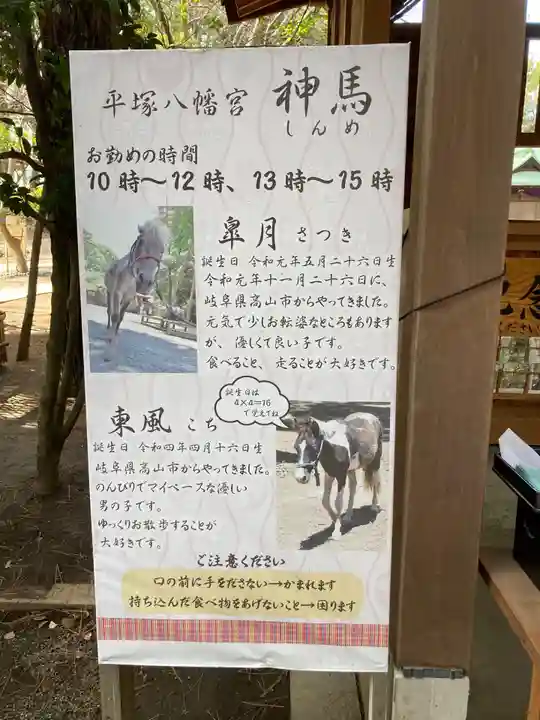 平塚八幡宮 神馬
しんめ
お勤めの時間
10時～12時、13時～15時
皐月 さつき
誕生日 令和元年五月二十六日生
令和元年十一月二十六日に、
岐阜県高山市からやってきました。
元気で少しお転婆なところもあります
が、優しくて良い子です。
食べること、走ることが大好きです。
誕生日は
4×4=16
で覚えてね
東風 こち
誕生日 令和四年四月十六日生
岐阜県高山市からやってきました。
のんびりでマイペースな優しい
男の子です。
ゆっくりお散歩することが
大好きです。
ご注意ください
口の前に手をださない→かまれます
持ち込んだ食べ物をあげないこと→困ります